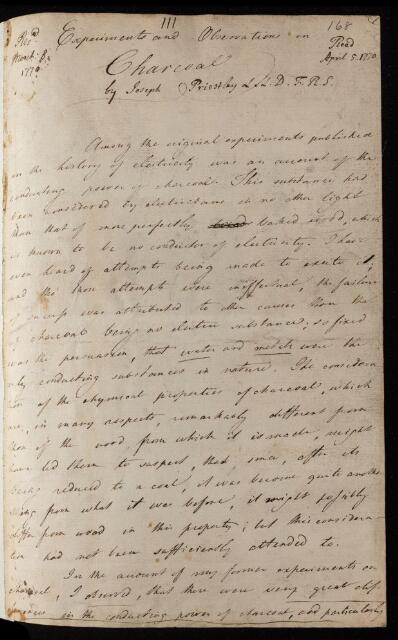 111
168
Rec'd
March 8
1770
Experiments and Observations on
Read
April 5. 1770
Charcoal
by Joseph Priestley L.L.D. F.R.S.
Among the original experiments published
in the history of electricity was an account of the
conducting power of charcoal. This substance had
been considered by electricians in no other light
than that of more perfectly baked wood, which
is known to be no conductor of electricity. I have
even heard of attempts being made to excite it;
and tho' those attempts were ineffectual, the failure
of success was attributed to other causes than the
charcoal being no electric substance; so fixed
was the persuasion, that water and metals were the
only conducting substances in nature. The considera
tion of the chymical properties of charcoal, which
are, in many respects, remarkably different from
those of the wood, from which it is made, might
have led them to suspect, that, since, after its
being reduced to a coal, it was become quite another
thing from what it was before, it might possibly
differ from wood in this property; but this considera
tion had not been sufficiently attended to.
In the account of my former experiments on
charcoal, I observed, that there were very great dif
ferences in the conducting power of charcoal, and particularly